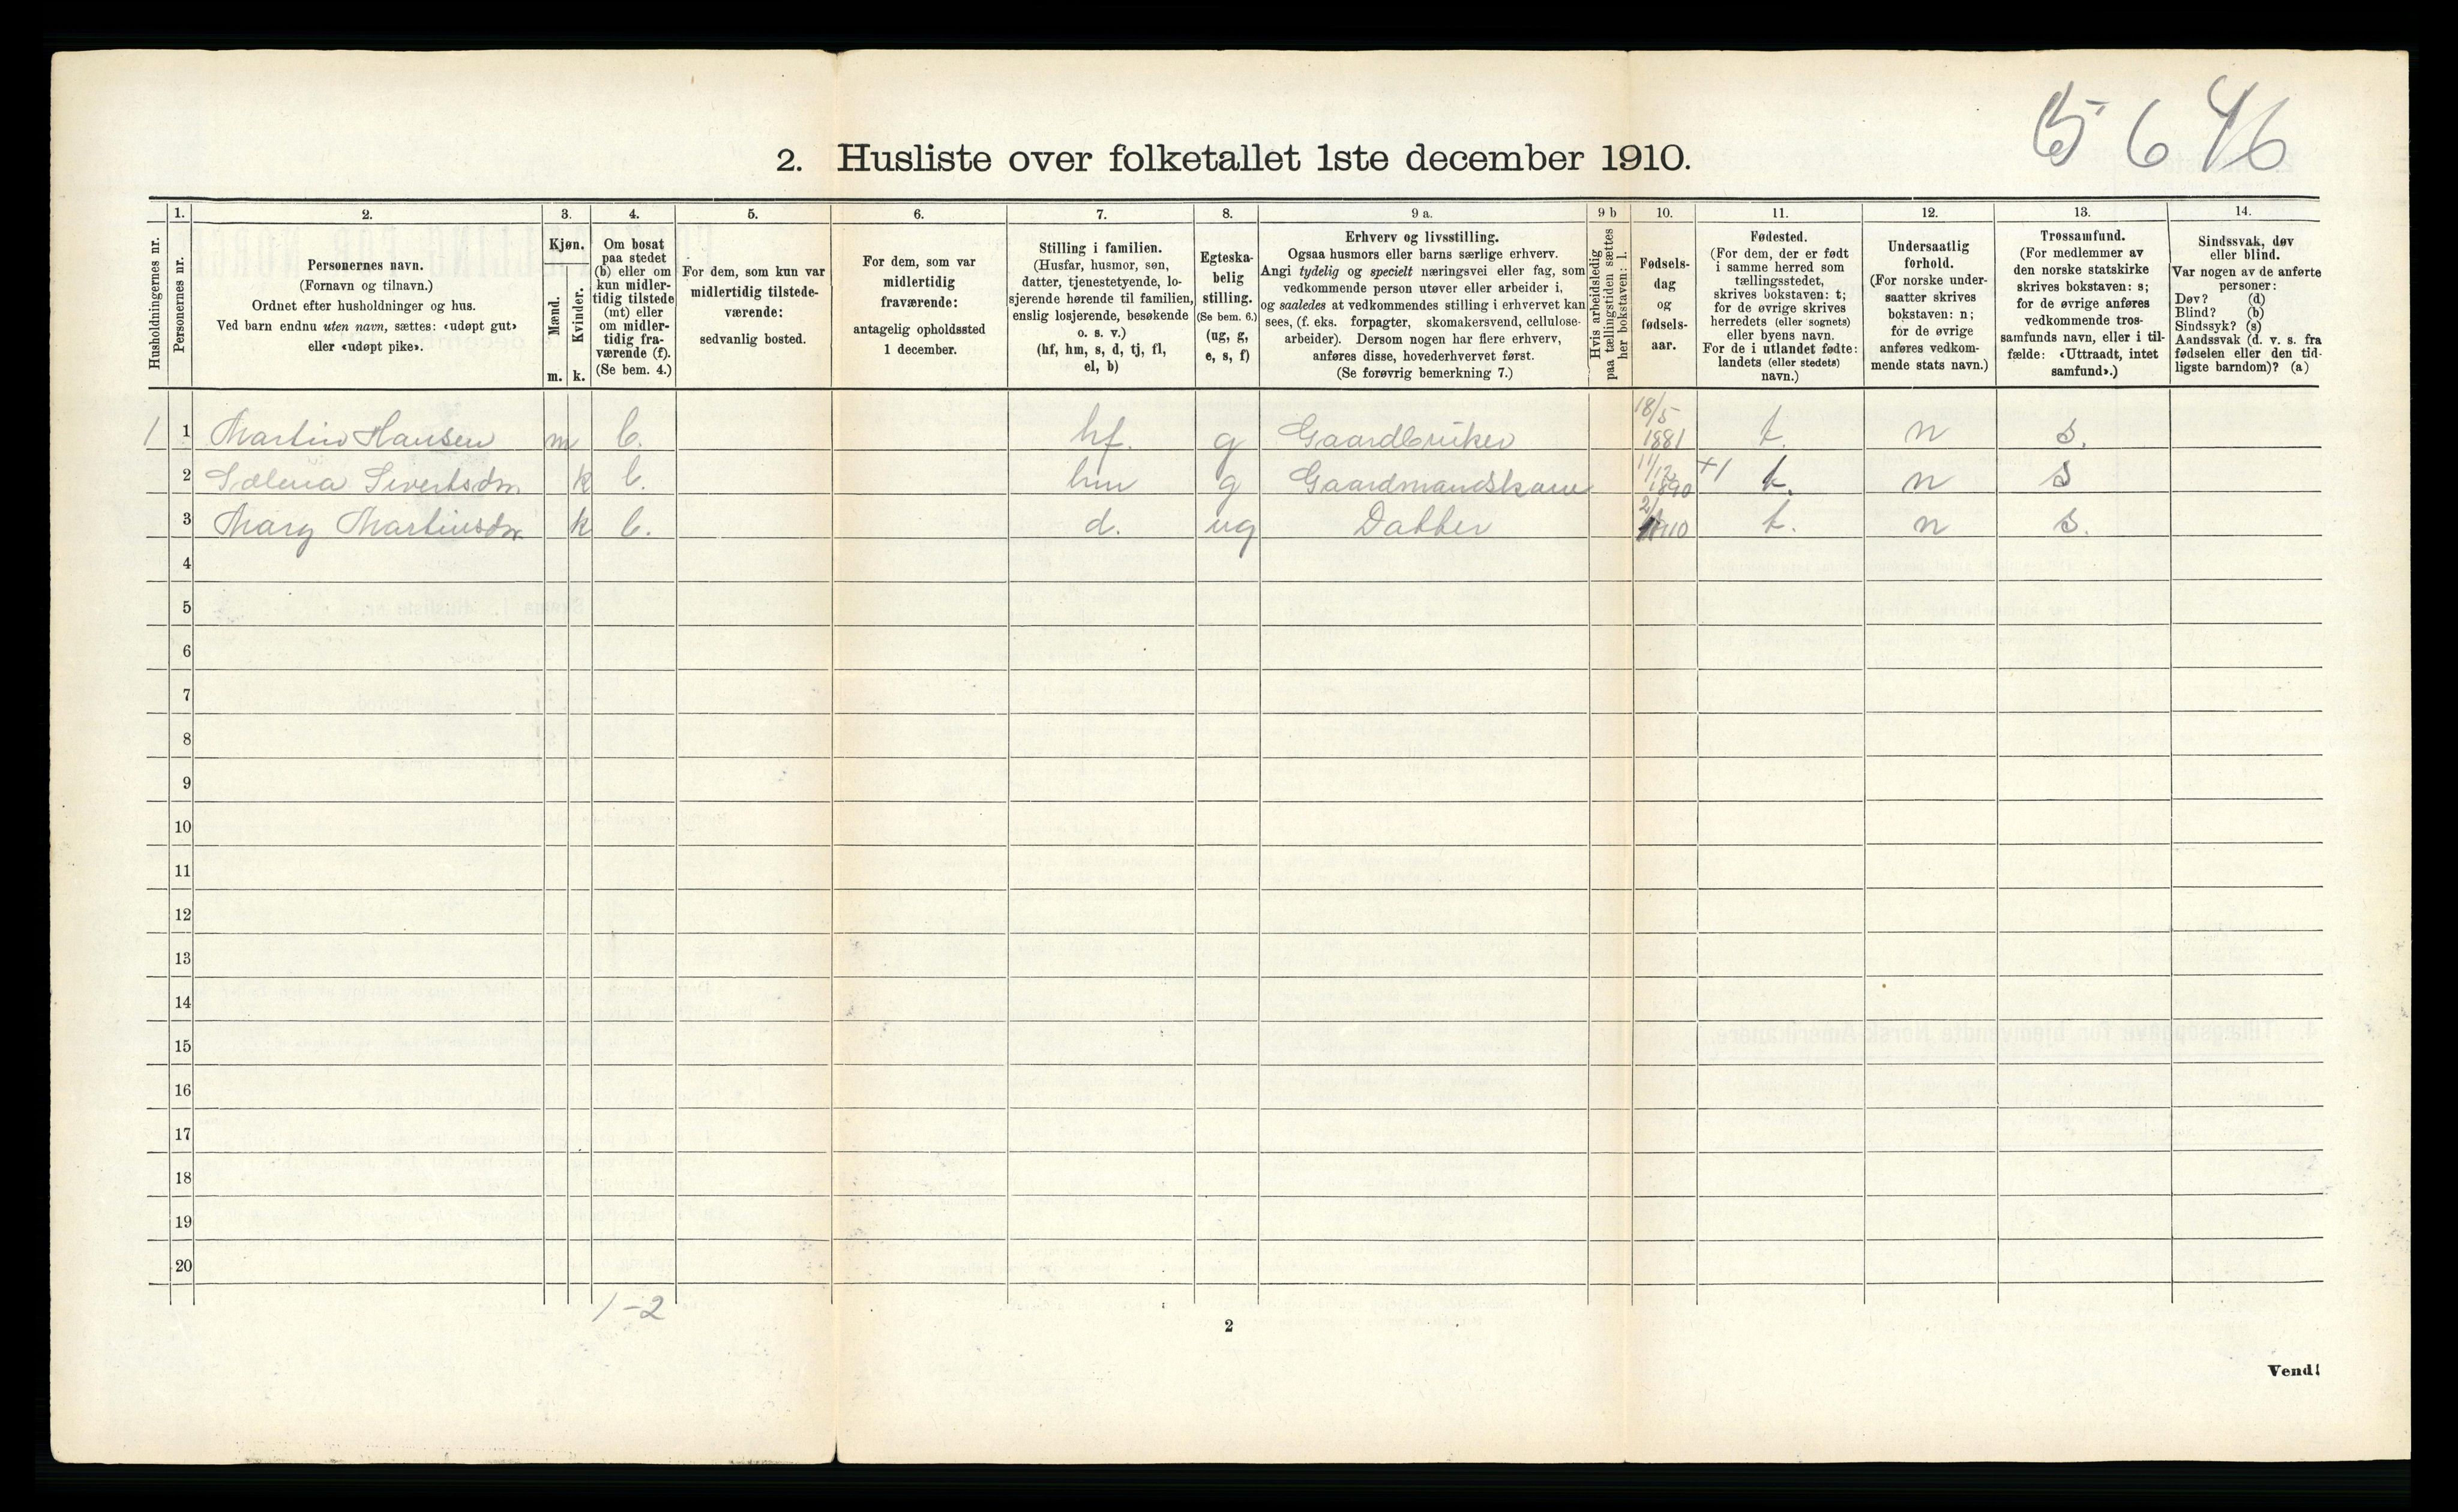 2. Husliste over folketallet 1ste december 1910.
Husholdningernes nr.
1.
Personernes nr.
2.
Personernes navn.
(Fornavn og tilnavn.)
Ordnet efter husholdninger og hus.
Ved barn endnu uten navn, sættes: «udøpt gut»
eller «udøpt pike».
3.
Kjøn.
Mænd.
Kvinder.
m. k.
4.
Om bosat
paa stedet
(b) eller om
kun midler-
tidig tilstede
(mt) eller
om midler-
tidig fra-
værende (f).
(Se bem. 4.)
5.
For dem, som kun var
midlertidig tilstede-
værende:
sedvanlig bosted.
6.
For dem, som var
midlertidig
fraværende:
antagelig opholdssted
1 december.
7.
Stilling i familien.
(Husfar, husmor, søn,
datter, tjenestetyende, lo-
sjerende hørende til familien,
enslig losjerende, besøkende
o. s. v.)
(hf, hm, s, d, tj, fl,
el, b)
8.
Egteska-
belig
stilling.
(Se bem. 6.)
(ug, g,
e, s, f)
9 a.
Erhverv og livsstilling.
Ogsaa husmors eller barns særlige erhverv.
Angi tydelig og specielt næringsvei eller fag, som
vedkommende person utøver eller arbeider i,
og saaledes at vedkommendes stilling i erhvervet kan
sees, (f. eks. forpagter, skomakersvend, cellulose-
arbeider). Dersom nogen har flere erhverv,
anføres disse, hovederhvervet først.
(Se forøvrig bemerkning 7.)
9 b
Hvis arbeidsledig
paa tællingstiden sættes
her bokstaven: l.
10.
Fødsels-
dag
og
fødsels-
aar.
11.
Fødested.
(For dem, der er født
i samme herred som
tællingsstedet,
skrives bokstaven: t;
for de øvrige skrives
herredets (eller sognets)
eller byens navn.
For de i utlandet fødte:
landets (eller stedets)
navn.)
12.
Undersaatlig
forhold.
(For norske under-
saatter skrives
bokstaven: n;
for de øvrige
anføres vedkom-
mende stats navn.)
13.
Trossamfund.
(For medlemmer av
den norske statskirke
skrives bokstaven: s;
for de øvrige anføres
vedkommende tros-
samfunds navn, eller i til-
fælde: «Uttraadt, intet
samfund».)
14.
Sindssvak, døv
eller blind.
Var nogen av de anførte
personer:
Døv? (d)
Blind? (b)
Sindssyk? (s)
Aandssvak (d. v. s. fra
fødselen eller den tid-
ligste barndom)? (a)
1 1 Martin Hansen m b. hf. g Gaardbruker 18/5 1881 t. n s.
2 Sælena Sivertsdtr k b. hm g Gaardmandskone 11/12 1890 +1 t. n s
3 Mary Martinsdtr k b. d. ug Datter 1910 t. n s.
4
5
6
7
8
9
10
11
12
13
14
15
16
17
18
19
20
1-2
2
Vend!